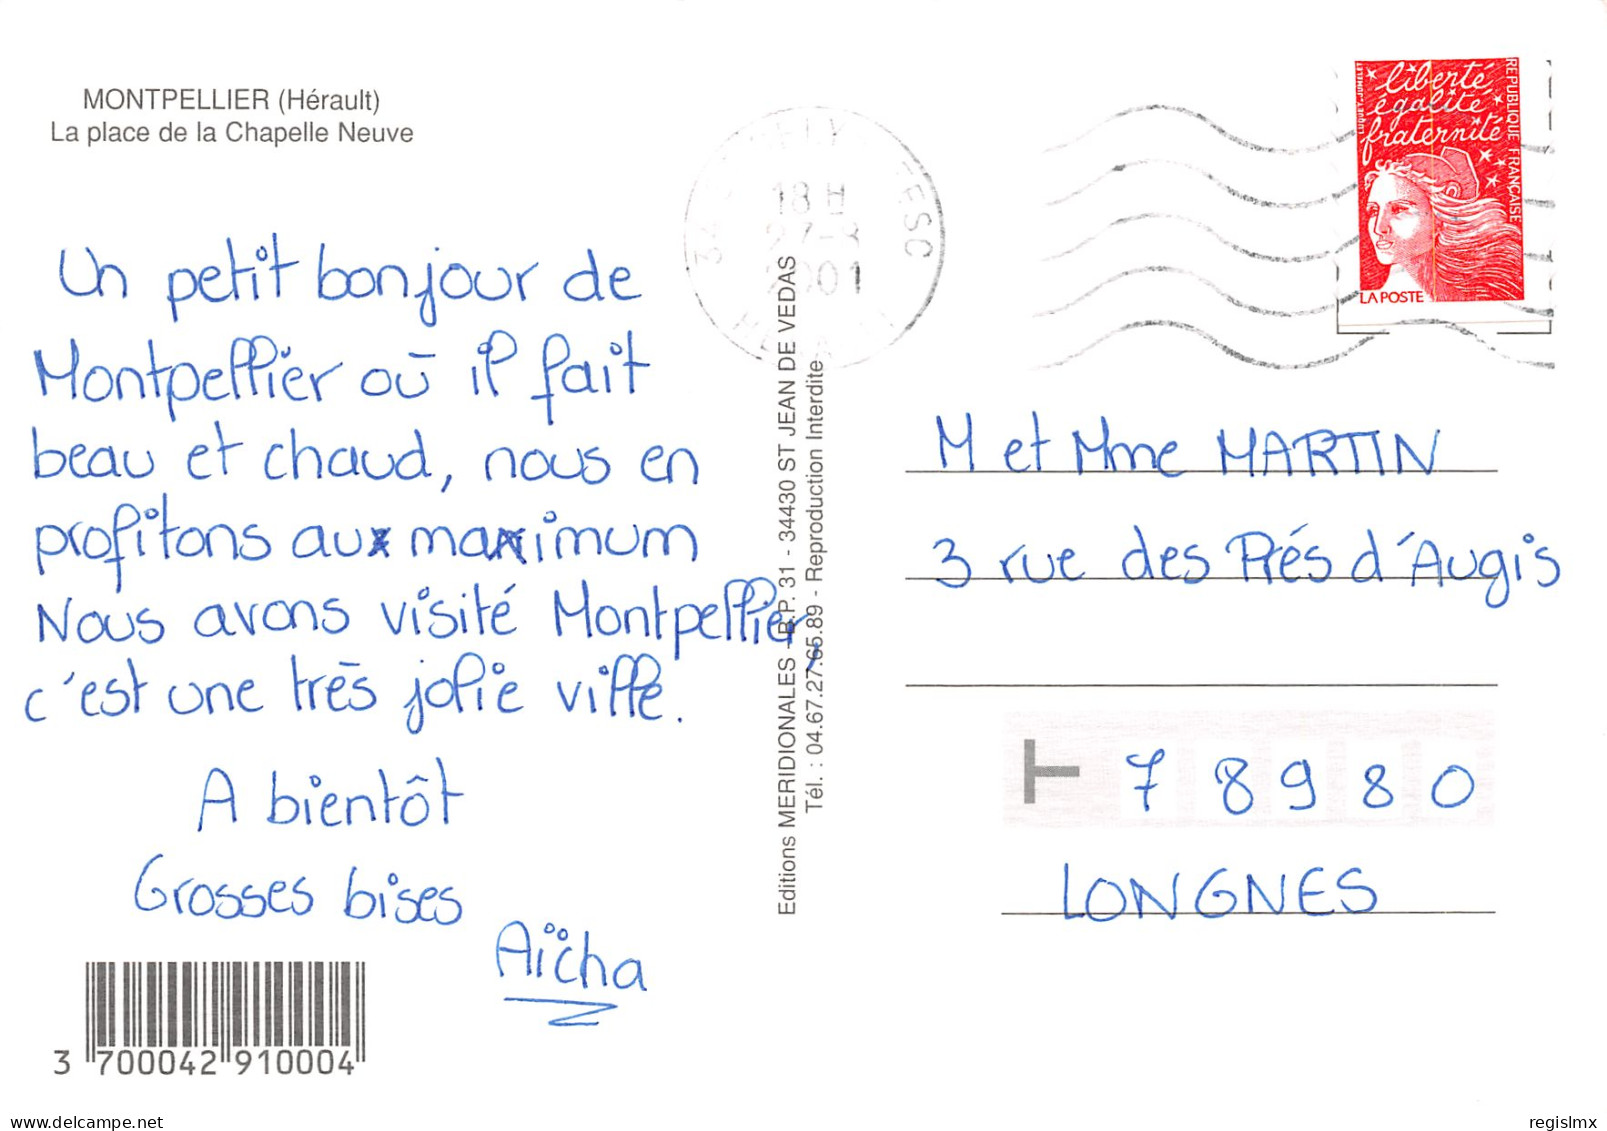 MONTPELLIER (Hérault)
La place de la Chapelle Neuve
Un petit bonjour de
Montpellier où il fait
beau et chaud, nous en
profitons aux maximum
Nous avons visité Montpellier,
c'est une très jolie ville.
A bientôt
Grosses bises
Aïcha
3 700042 910004
Editions MERIDIONALES - B.P. 31 - 34430 ST JEAN DE VEDAS
Tél. : 04.67.27.65.89 - Reproduction Interdite
18 H
2001
liberté
égalité
fraternité
REPUBLIQUE FRANÇAISE
LA POSTE
M et Mme MARTIN
3 rue des Prés d'Augis
78980
LONGNES
www.delcampe.net
regislmx